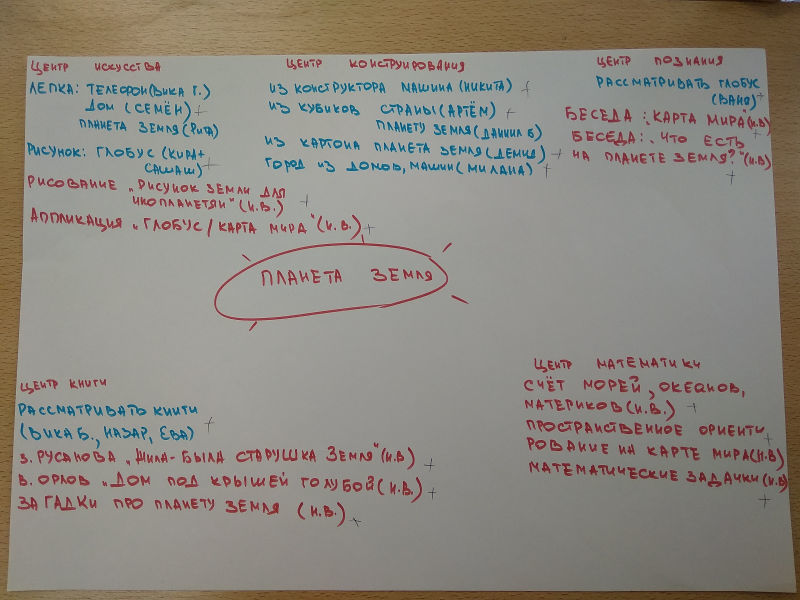 ЦЕНТР ИСКУССТВА
ЛЕПКА: ТЕЛЕФОН(ВИКА Г.)
ДОМ (СЕМЁН) +
ПЛАНЕТА ЗЕМЛЯ(РИТА) +
РИСУНОК: ГЛОБУС (КИРА+
САША Ш) +
РИСОВАНИЕ „РИСУНОК ЗЕМЛИ ДЛЯ
ИНОПЛАНЕТЯН" (И.В.) +
АППЛИКАЦИЯ „ГЛОБУС / КАРТА МИРА"(И.В.) +
ЦЕНТР КОНСТРУИРОВАНИЯ
ИЗ КОНСТРУКТОРА МАШИНА (НИКИТА) +
ИЗ КУБИКОВ СТРАНЫ(АРТЁМ) +
ПЛАНЕТУ ЗЕМЛЯ(ДАНИИЛ Б)
ИЗ КАРТОНА ПЛАНЕТА ЗЕМЛЯ(ДЕМИД) +
ГОРОД ИЗ ДОМОВ, МАШИН( МИЛАНА) +
ЦЕНТР ПОЗНАНИЯ
РАССМАТРИВАТЬ ГЛОБУС
(ВАНЯ) +
БЕСЕДА: „КАРТА МИРА"(И.В) +
БЕСЕДА: „ЧТО ЕСТЬ
НА ПЛАНЕТЕ ЗЕМЛЯ?"(И.В) +
ПЛАНЕТА ЗЕМЛЯ
ЦЕНТР КНИГИ
РАССМАТРИВАТЬ КНИГИ
(ВИКА Б., НАЗАР, ЕВА) +
З. РУСАНОВА „ЖИЛА-БЫЛА СТАРУШКА ЗЕМЛЯ"(И.В) +
В. ОРЛОВ „ДОМ ПОД КРЫШЕЙ ГОЛУБОЙ(И.В.) +
ЗАГАДКИ ПРО ПЛАНЕТУ ЗЕМЛЯ (И.В.) +
ЦЕНТР МАТЕМАТИКИ
СЧЁТ МОРЕЙ, ОКЕАНОВ,
МАТЕРИКОВ(И.В.) +
ПРОСТРАНСТВЕННОЕ ОРИЕНТИ +
РОВАНИЕ НА КАРТЕ МИРА(И.В)
МАТЕМАТИЧЕСКИЕ ЗАДАЧКИ(И.В) +